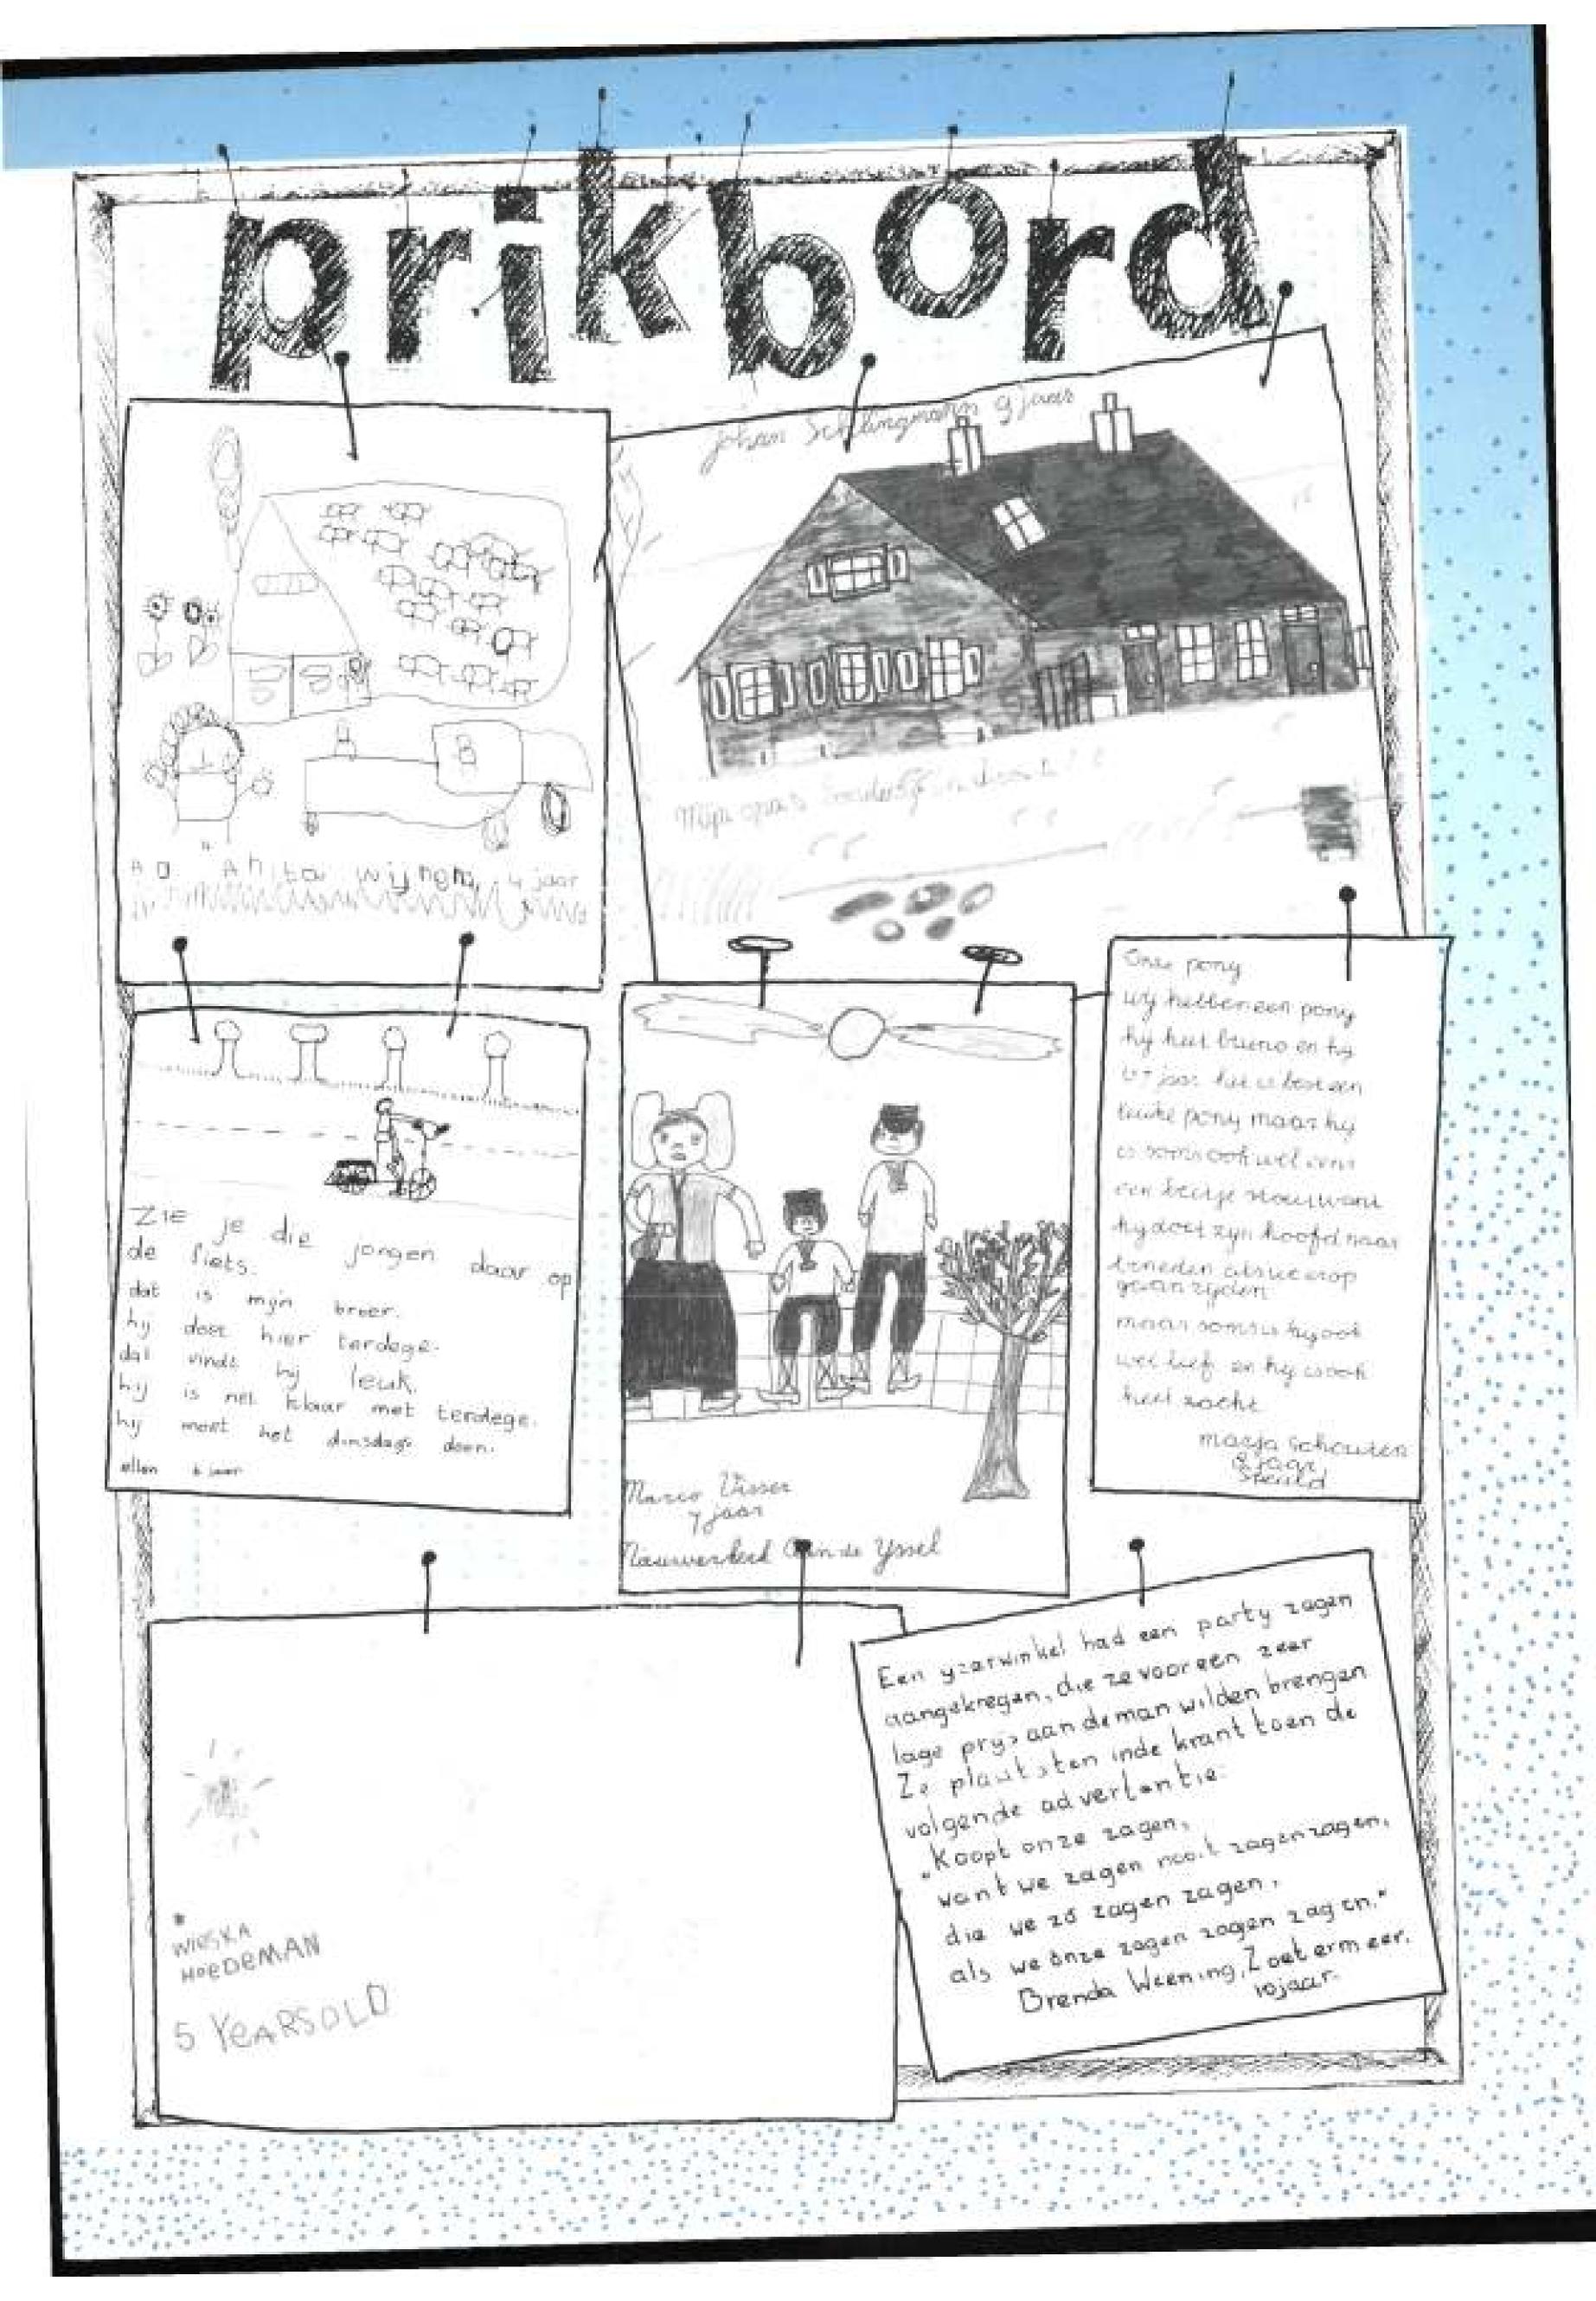 prikbord
Johan Schlingmann 9 jaar
Mijn opa's boerderij in
Anita Wijnen 4 jaar
Onze pony
wij hebben een pony
hij heet bruno en hij
is 7 jaar. het is best een
leuke pony maar hij
is soms ook wel eens
een beetje
hij doet zijn hoofd naar
beneden als we erop
gaan rijden
maar soms is hij ook
wel lief en hij is ook
heel zacht
Marja Schouten
jaar
ZIE je die jongen daar op
de fiets.
dat is mijn broer.
hij doet hier terdege.
dat vindt hij leuk.
hij is net klaar met terdege.
hij moet het dinsdags doen.
ellen 6 jaar
Marco Visser
7 jaar
aan de Yssel
WIESKA
HOEDEMAN
5 YEARSOLD
Een yzerwinkel had een party zagen
aangekregen, die ze voor een zeer
lage prys aan de man wilden brengen
Ze plaatsten in de krant toen de
volgende advertentie:
"Koopt onze zagen,
want we zagen nooit zagen zagen,
die we zó zagen zagen,
als we ònze zagen zagen zagen."
Brenda Weening, Zoetermeer.
10 jaar.